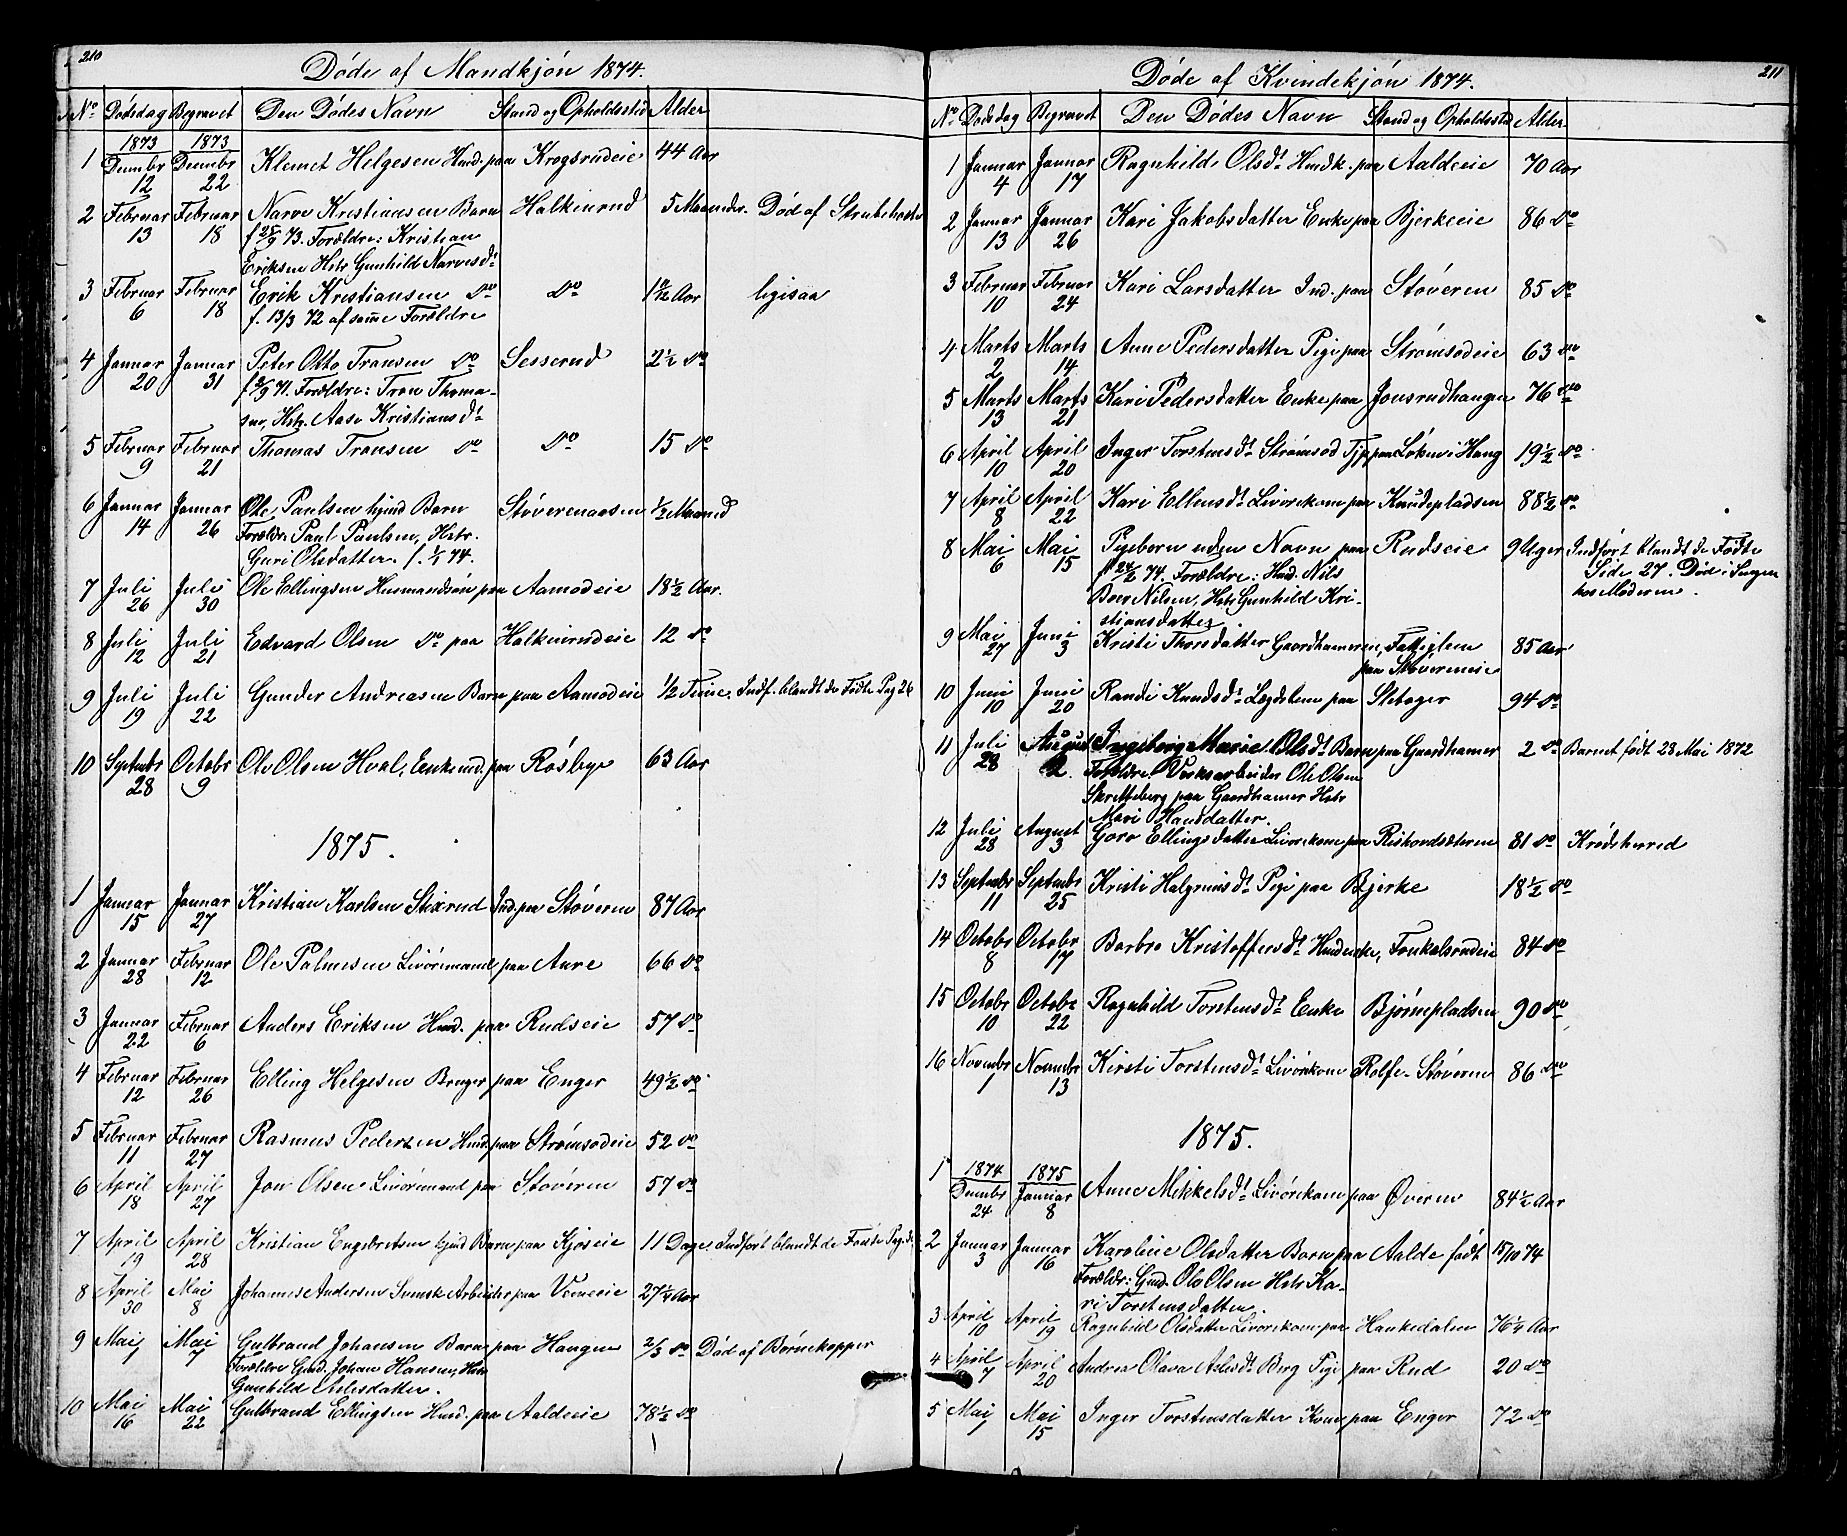 210
Døde af Mandkjøn 1874.
No Dødsdag Begravet Den Dødes Navn Stand og Opholdssted Alder
1873 1873
1 Decembr 12 Decembr 22 Klemet Helgesen Husd. paa Krogsrudeie 44 Aar
2 Februar 13 Februar 18 Narve Kristiansen Barn Halkinrud 5 Maaneder. Død af Strubehoste
f 28/9 73. Forældre: Kristian
Eriksen Hstr Gunhild Narvesdt
3 Februar 6 Februar 18 Erik Kristiansen Do Do 1 9/12 Aar ligisaa
f. 13/3 72 af samme Forældre
4 Januar 20 Januar 31 Peter Otto Transen Do Sesserud 2½ Do
71. Forældre: Tron Thoma-
sen, Hstr. Aase Kristiansdt
5 Februar 9 Februar 21 Thomas Transen Do Do 15 Do
6 Januar 14 Januar 26 Ole Paulsen Barn Støverenaasen ½ Maaned
Forældr. Paul Paulsen, Hstr.
Guri Olsdatter. f. 1/1 74.
7 Juli 26 Juli 30 Ole Ellingsen Husmandsøn paa Aamodeie 18½ Aar.
8 Juli 12 Juli 21 Edvard Olsen Do paa Halkinrudeie 12 Do
9 Juli 19 Juli 22 Gunder Andreasen Barn paa Aamodeie ½ Time, Indf. blandt de Fødte Pag 26
10 Septembr 28 Octobr 9 Ole Olsen Hval, Enkemd. paa Røsbye 63 Aar
1875.
1 Januar 15 Januar 27 Kristian Karlsen Stixrud Ind. paa Støveren 87 Aar
2 Januar 28 Februar 12 Ole Palmesen Livøremand paa Aure 66 Do
3 Januar 22 Februar 6 Anders Eriksen Husd. paa Rudseie 57 Do
4 Februar 12 Februar 26 Elling Helgesen Bruger paa Enger 49½ Do
5 Februar 11 Februar 27 Rasmus Pedersen Husd. paa Strømsodeie 52 Do
6 April 18 April 27 Jon Olsen Livøremand paa Støveren 57 Do
7 April 19 April 28 Kristian Engebretsen Barn paa Kjøseie 11 Dage, Indført blandt de Fødte Pag.
8 April 30 Mai 8 Johannes Andersen Svensk Arbeider paa Vemeeie 27¼ Aar
9 Mai 1 Mai 7 Gulbrand Johansen Barn paa Haugen 2/3 Do Død af Børnekopper
Forældre Johan Hansen, Hstr
Gunhild Aslesdatter.
10 Mai 16 Mai 22 Gulbrand Ellingsen Husd. paa Aaldeeie 78½ Do
211
Døde af Kvindekjøn 1874.
No Dødsdag Begravet Den Dødes Navn Stand og Opholdssted Alder
1 Januar 4 Januar 17 Ragnhild Olsdt Husdk. paa Aaldeeie 70 Aar
2 Januar 13 Januar 26 Kari Jakobsdatter Enke paa Bjerkeeie 86 Do
3 Februar 10 Februar 24 Kari Larsdatter Ind. paa Støveren 85 Do
4 Marts 2 Marts 14 Anne Pedersdatter Pige paa Strømsodeie 63 Do
5 Marts 13 Marts 21 Kari Pedersdatter Enke paa Jonsrudhaugen 76 Do
6 April 10 April 20 Inger Torstensdt Strømsod Tjp paa Løken i Haug 19½ Do
7 April 8 April 22 Kari Ellensdt Livørekone paa Knudepladsen 88½ Do
8 Mai 6 Mai 15 Pigebarn uden Navn paa Rudseie 9 Uger Indført blandt de Fødte
f 24/2 74. Forældre: Husd. Nils Side 27. Død i Sengen
Boer Nilsen, Hstr Gunhild Kri- hos Moderen.
stiansdatter
9 Mai 27 Juni 3 Kristi Thorsdatter Gaardhameren, Fattiglem 85 Aar
paa Støvereneie
10 Juni 10 Juni 20 Randi Knudsdt Lægdslem paa Sletager 94 Do
11 Juli 28 August 2 Ingeborg Marie Olsdt Barn paa Gaardhamer 2 Do Barnet født 23 Mai 1872
Forældre. Verksarbeider Ole Olsen
Skretteberg paa Gaardhamer Hstr
Mari Hansdatter.
12 Juli 28 August 3 Goro Ellingsdatter Livørekone paa 81 Do Krødsherred
13 Septembr 11 Septembr 25 Kristi Halgrimsdt Pige paa Bjerke 18½ Do
14 Octobr 8 Octobr 17 Barbro Kristoffersdt Husdenke, Fonkalsrudeie 84 Do
15 Octobr 10 Octobr 22 Ragnhild Torstensdt Enke Bjørnepladsen 90 Do
16 Novembr 1 Novembr 13 Kirsti Torstensdt Livørekone Rolfe-Støveren 86 Do
1875.
1874 1875
1 Decembr 24 Januar 8 Anne Mikkelsdt Livørekone paa Øveren 84½ Aar
2 Januar 3 Januar 16 Karoline Olsdatter Barn paa Aalde født 15/10 74
Forældr: Ole Olsen Hstr Ka-
ri Torstensdatter.
3 April 10 April 19 Ragnhild Olsdatter Livørekone paa Hankedalen 76¼ Aar
4 April 7 April 20 Andrea Olava Aslesdt Berg Pige paa Rud 20 Do
5 Mai 1 Mai 15 Inger Torstensdatter Kone paa Enger 72 Do